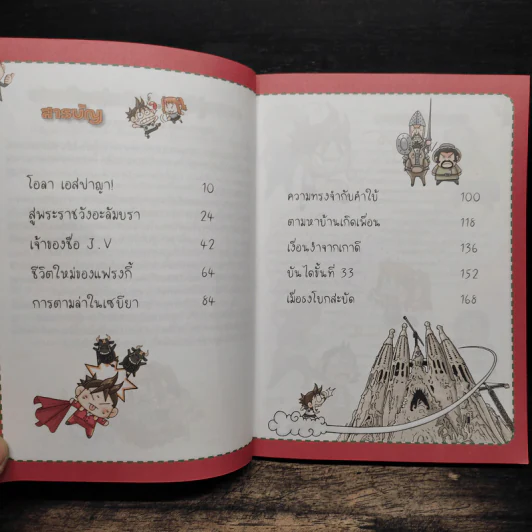 สารบัญ
โอลา เอสปาญา! 10
สู่พระราชวังอะลัมบรา 24
เจ้าของชื่อ J.V 42
ชีวิตใหม่ของแฟรงกี้ 64
การตามล่าในเซบียา 84
ความทรงจำกับคำใบ้ 100
ตามหาบ้านเกิดเพื่อน 118
เงื่อนงำจากเกาดี 136
บันไดขั้นที่ 33 152
เมื่อธงโบกสะบัด 168